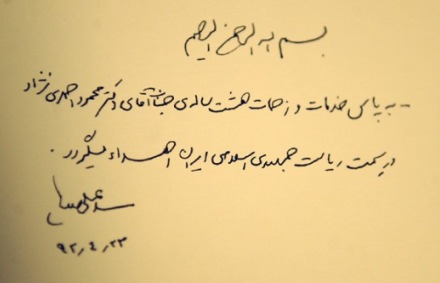 بسم الله الرحمن الرحیم
- به پاس خدمات و زحمات هشت ساله‌ی جناب آقای دکتر محمود احمدی نژاد
در سمت ریاست جمهوری اسلامی ایران اهداء میگردد.
سید علی
۹۲٫۴٫۲۳